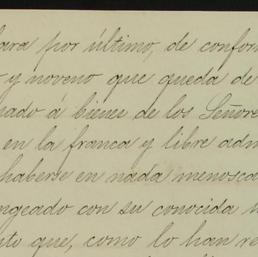 ara por último, de confor
y noveno que queda de
nado á bienes de los Señore
en la franca y libre adm
haberse en nada menosca
ngeado con su conocida
nto que, como lo han re